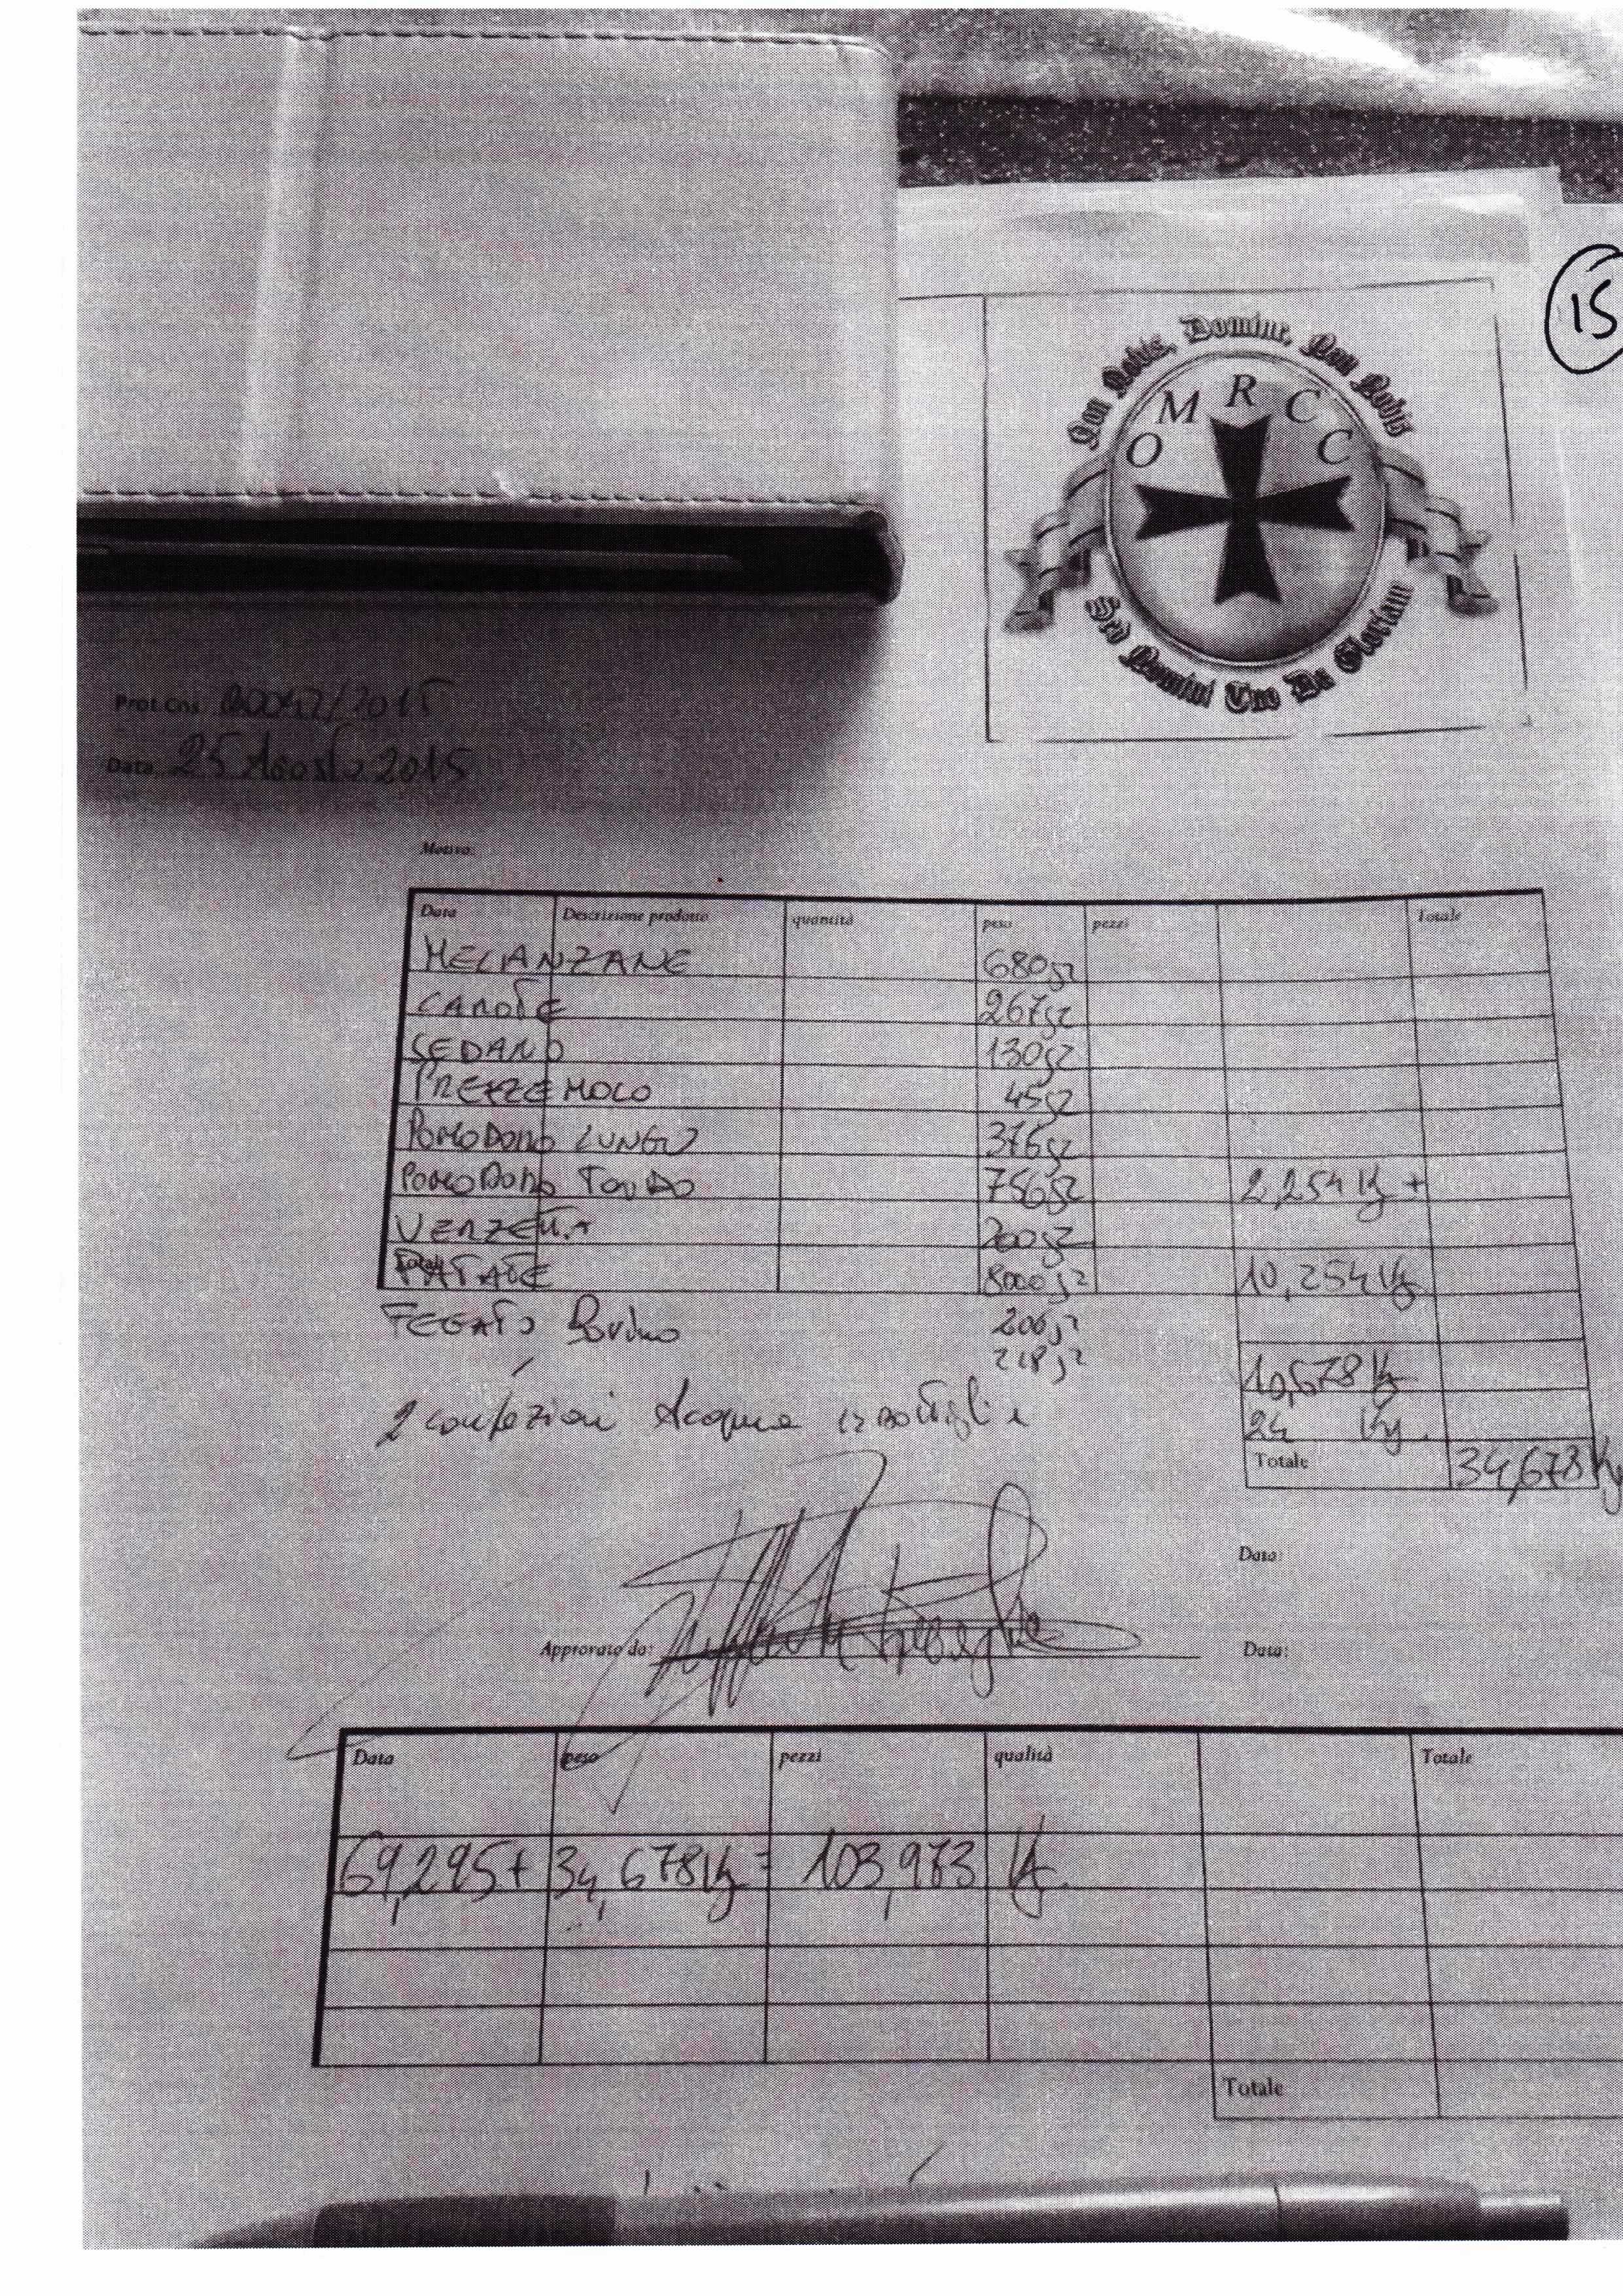 15
Non Nobis, Domine, Non Nobis
O M R C C
Sed Nomini Tuo Da Gloriam
Prot.Cns. 00042/2015
Data. 25 Agosto 2015
Motivo:
Data Descrizione prodotto quantità peso pezzi Totale
MELANZANE 680gr
CAROTE 267gr
SEDANO 130gr
PREZZEMOLO 45gr
POMODORO LUNGO 376gr
POMODORO TONDO 756gr 2,254 Kg +
VERZETTA 200gr
Totale PATATE 8000gr 10,254 Kg
FEGATO Bovino 206gr
218gr
10,678 Kg
2 confezioni Acqua 12 BOTTIGLIE
24 Kg.
Totale 34,678 Kg
Data:
Approvato da:
Data:
Data peso pezzi qualità Totale
69,295 + 34,678 Kg = 103,973 Kg.
Totale